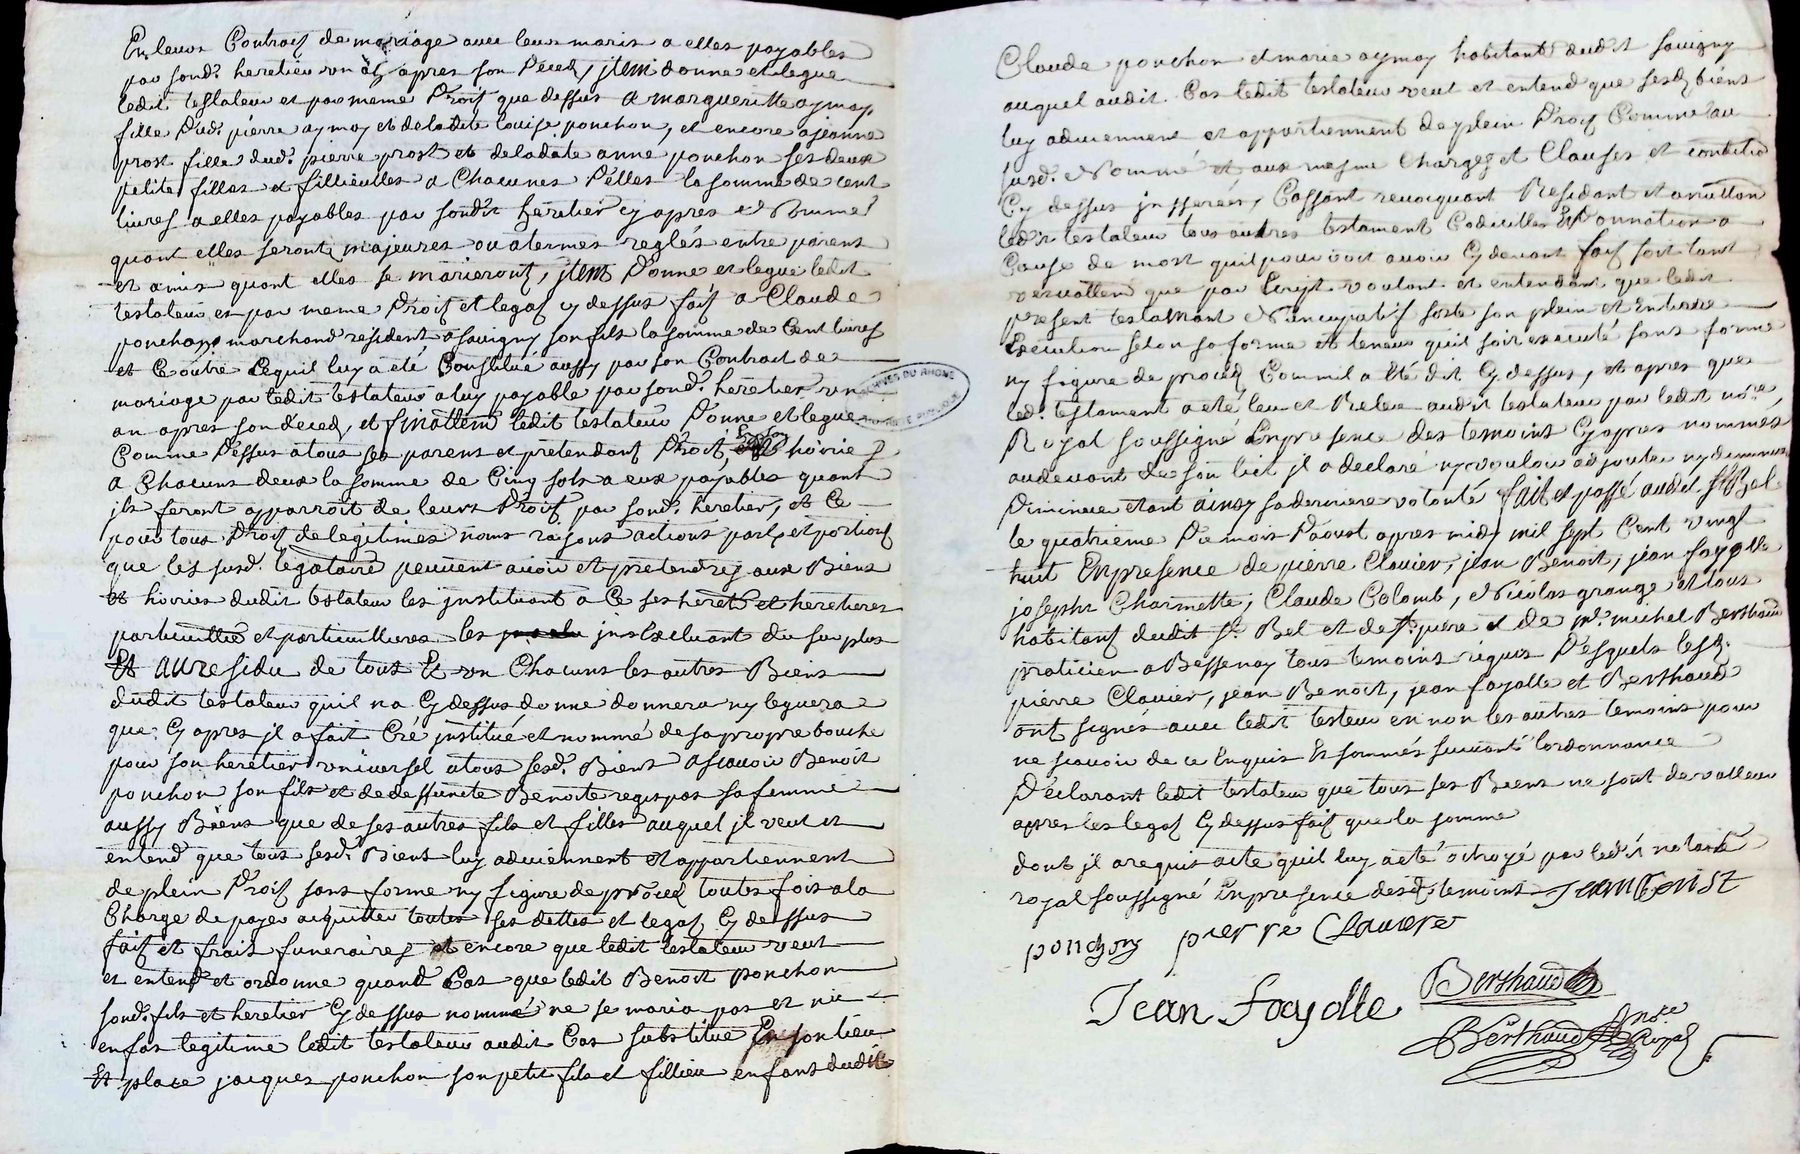 En leurs Contrats de mariage avec leurs maris a elles payables
par sond.t heretier un an apres son Deced, jtem donne et legue
ledit testateur et par meme Droit que dessus a margueritte aymoy
fille Dud.t pierre aymoy et deladite louise ponchon, et encore a jeanne
prost fille dud.t pierre prost et deladite anne ponchon ses deux
petite filles et fillieulles a Chacunes Délles la somme de cent
livres a elles payables par sondit heretier cy apres Nommé
quant elles seront majeures ou a termes reglés entre parens
et amis quant elles se marieront, jtem Donne et legue ledit
testateur et par meme Droit et legat cy dessus fait a Claude
ponchon marchand resident a Savigny son fils la somme de Cent livres
et Ce outre Cequil luy a eté Constitué aussy par son Contract de
mariage par ledit testateur a luy payable par sond.t heretier un
an apres son déced, et finallem ledit testateur Donne et legue
Comme Déssus a tous ses parens et pretendant Droit hoirie
a Chacuns deux la somme de Cinq sols a eux payables quant
jls feront apparroit de leurs Droit par sond.t heretier, et Ce
pour tous Droit de legitimes noms raisons actions parts et portions
que les susd.t legataire peuvent avoir et pretendre aux Biens
et hoiries dudit testateur les jnstituant a Ce ses heret et heretieres
particullier et particullieres les jnsExcluant du surplus
Et au residu de tous Et un Chacuns les autres Biens
dudit testateur quil na Cy dessus donné donnera ny leguera
que Cy apres jl a fait Créé jnstitué et nommé de sa propre bouche
pour son heretier universel a tous sesd.t Biens Ascavoir Benoit
ponchon son fils et de deffuncte Benoite regipas sa femme
aussy Biens que de ses autres fils et filles auquel jl veut et
entend que tous sesd.t Biens luy adviennent et appartiennent
de plein Droit sans forme ny figure de proced toutes fois a la
Charge de payer acquitter toutes ses dettes et legat Cy dessus
fait et frais funeraires et encore que ledit testateur veut
et entend et ordonne quand Cas que ledit Benoit ponchon
sond.t fils et heretier Cy dessus nommé ne se maria pas et nie
enfas legitime ledit testateur audit Cas substitue En son lieu
Et place jacques ponchon son petit fils et fillieu enfans dudit
Claude ponchon et marie aymoy habitant dudit Savigny
auquel audit Cas ledit testateur veut et entend que sesd biens
luy adviennent et appartiennent de plein Droit Comme au
susd.t Nommé et aux mesme Charges et Clauses et conditio
Cy dessus jnsserées, Cassant revocquant Residant et anullan
ledit testateur tous autres testament Codicilles Et Donnation a
Cause de mort quil pourroit avoir Cy devant fait soit tant
verballem que par Ecript voulant et entendant que ledit
present testamant Nuncupatif sorte son plein et Entiere
Execution selon sa forme et teneur quil soit executé sans forme
ny figure de proced Comme il a Eté dit Cy dessus, et apres que
led.t testament a eté leu et Releu audit testateur par ledit no.re
Royal soussigné Enpresence des temoins Cy apres nommés
audevant de son lict jl a declaré ny vouloir adjouter ny
Diminuer etant ainsy sa derniere volonté fait et passé audit St Bel
le quatrieme Du mois Daoust apres midy mil sept Cent vingt
huit Enpresence de pierre Clavier, jean Benoit, jean fayolle
josepht Charmette, Claude Colomb, Nicolas grange et tous
habitant dudit St Bel et de St piere et de m.e michel Berthaud
praticien a Bessenay tous temoins requis Desquels lesd.
pierre Clavier, jean Benoit, jean fayolle et Berthaud
ont signés avec ledit testeur en non les autres temoins pour
ne scavoir de ce Enquis Et sommés suivant l'ordonnance
Déclarant ledit testateur que tous ses Biens ne sont de valleur
apres les legat Cy dessus fait que la somme
dont jl a requis acte quil luy a eté octroyé par ledit notaire
royal soussigné Enpresence desd temoins Jean Benoist
ponchon pierre Clavere
Berthaud
Jean Fayolle
Berthaud no.re Royal